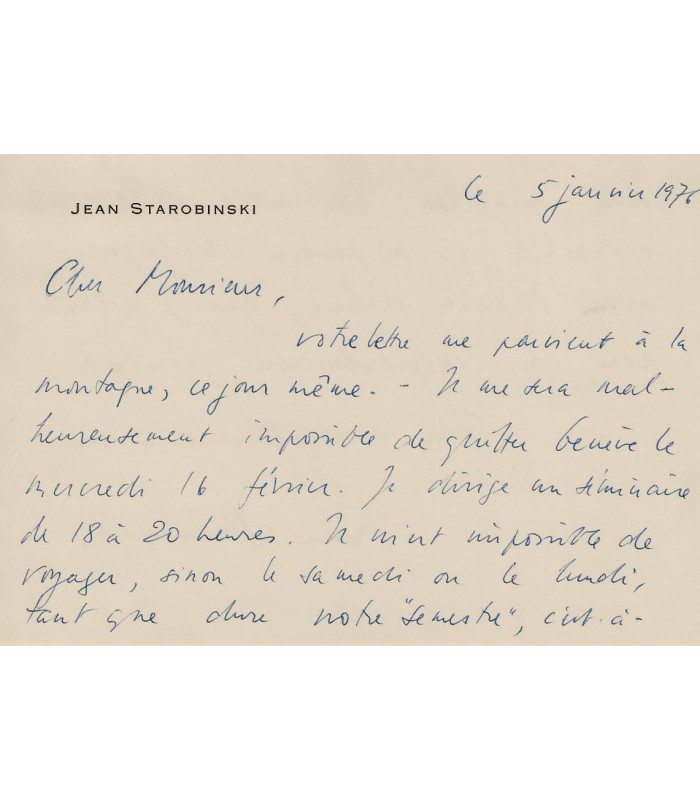 le 5 janvier 1976
JEAN STAROBINSKI
Cher Monsieur,
votre lettre me parvient à la
montagne, ce jour même. – Il me sera mal-
heureusement impossible de quitter Genève le
mercredi 16 février. Je dirige un séminaire
de 18 à 20 heures. Il m'est impossible de
voyager, sinon le samedi ou le lundi,
tant que dure notre "semestre", c'est-à-